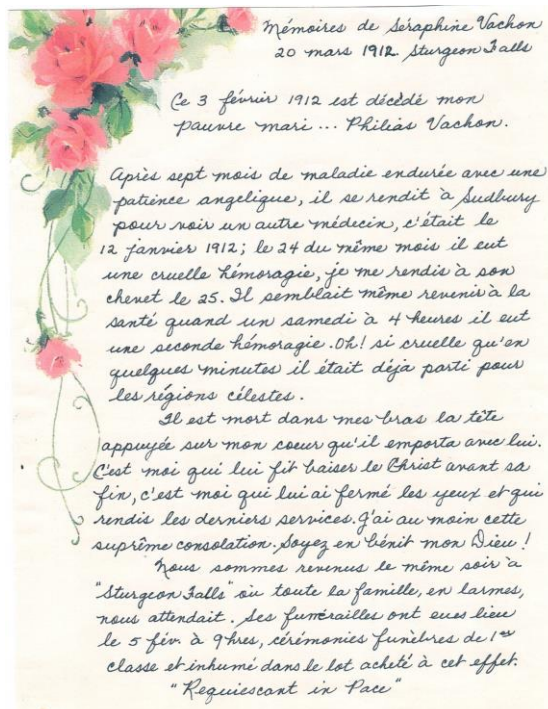 Mémoires de Séraphine Vachon
20 mars 1912 Sturgeon Falls
Ce 3 février 1912 est décédé mon
pauvre mari ... Philias Vachon.
Après sept mois de maladie endurée avec une
patience angelique, il se rendit à Sudbury
pour voir un autre médecin, c'était le
12 janvier 1912; le 24 du même mois il eut
une cruelle hémoragie, je me rendis à son
chevet le 25. Il semblait même revenir à la
santé quand un samedi à 4 heures il eut
une seconde hémoragie. Oh! si cruelle qu'en
quelques minutes il était déja parti pour
les régions célestes.
Il est mort dans mes bras la tête
appuyée sur mon coeur qu'il emporta avec lui.
C'est moi qui lui fit baiser le Christ avant sa
fin, c'est moi qui lui ai fermé les yeux et qui
rendis les derniers services. J'ai au moin cette
suprême consolation. Soyez en bénit mon Dieu!
Nous sommes revenus le même soir à
"Sturgeon Falls" où toute la famille, en larmes,
nous attendait. Ses funérailles ont eues lieu
le 5 fév. à 9hres, cérémonies funèbres de 1ère
classe et inhumé dans le lot acheté à cet effet.
"Requiescant in Pace"